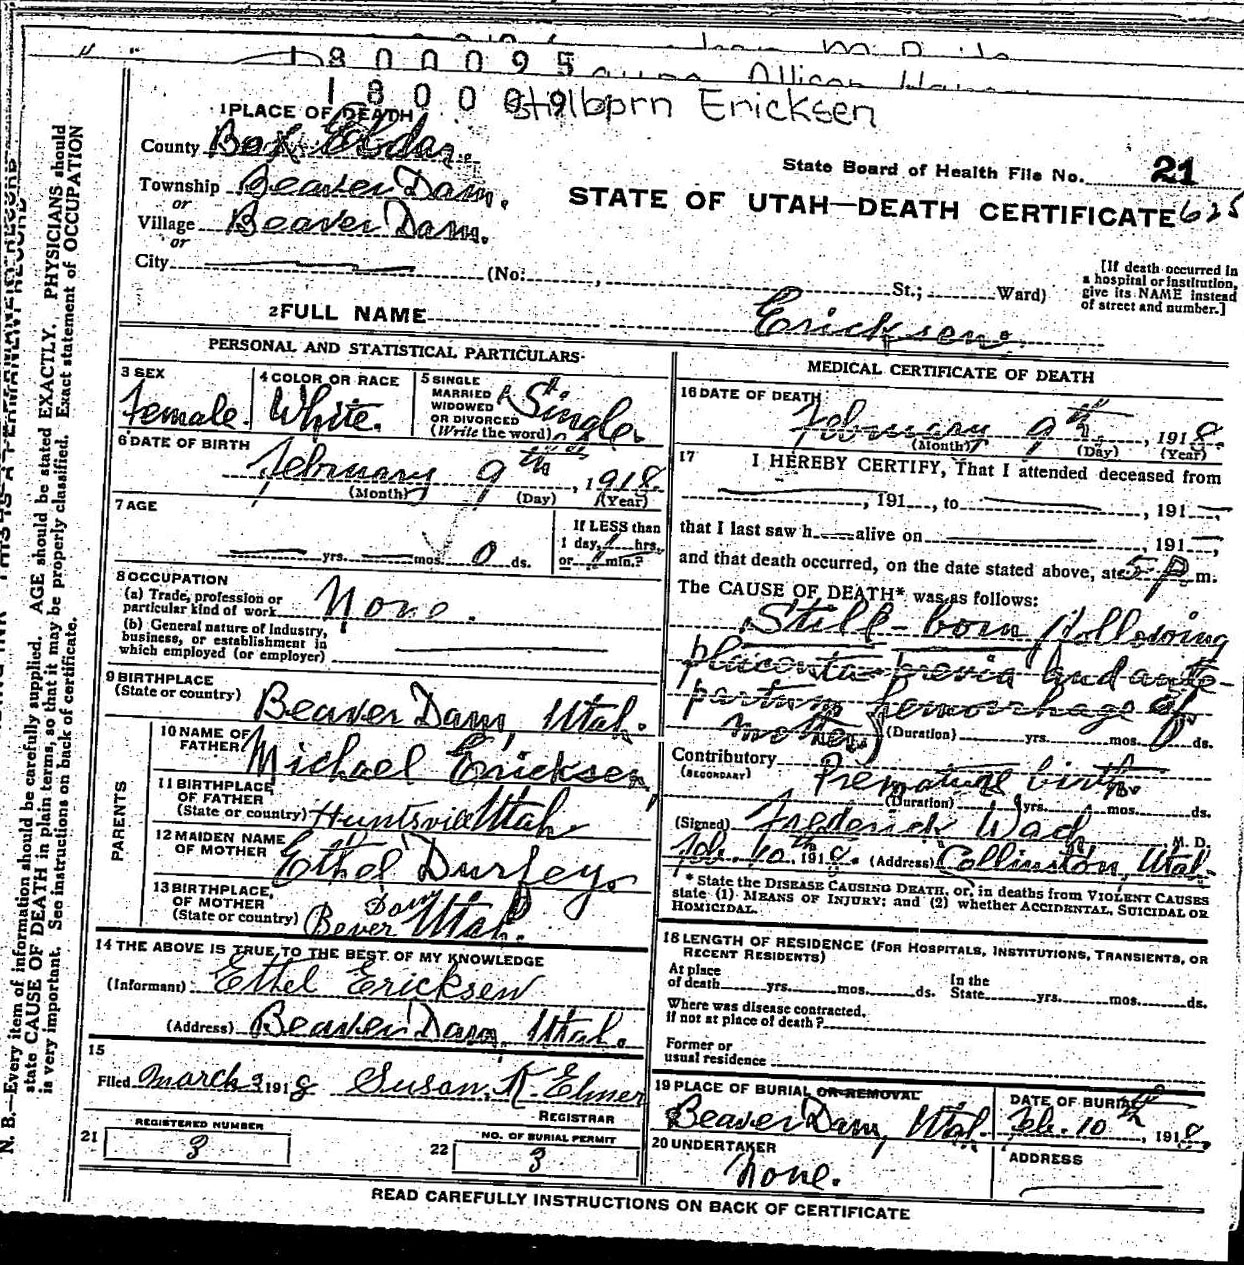 1800095
Allison
180009
Stillborn Ericksen
1 PLACE OF DEATH
County Box Elder.
State Board of Health File No. 21
Township Beaver Dam.
or
STATE OF UTAH—DEATH CERTIFICATE 625
Village Beaver Dam.
or
City (No. , St.; Ward)
[If death occurred in
a hospital or institution,
give its NAME instead
of street and number.]
2 FULL NAME Ericksen.
PERSONAL AND STATISTICAL PARTICULARS
3 SEX
Female.
4 COLOR OR RACE
White.
5 SINGLE
MARRIED
WIDOWED
OR DIVORCED
(Write the word)
Single.
6 DATE OF BIRTH
February 9th, 1918.
(Month) (Day) (Year)
7 AGE
yrs. mos. 0 ds.
If LESS than
1 day, hrs.
or min.?
8 OCCUPATION
(a) Trade, profession or
particular kind of work None.
(b) General nature of Industry,
business, or establishment in
which employed (or employer)
9 BIRTHPLACE
(State or country) Beaver Dam, Utah.
PARENTS
10 NAME OF
FATHER Michael Ericksen,
11 BIRTHPLACE
OF FATHER
(State or country) Huntsville Utah
12 MAIDEN NAME
OF MOTHER Ethel Durfey.
13 BIRTHPLACE,
OF MOTHER
(State or country) Bever Dam Utah.
14 THE ABOVE IS TRUE TO THE BEST OF MY KNOWLEDGE
(Informant) Ethel Ericksen
(Address) Beaver Dam, Utah.
15
Filed March 3 1918 Susan. K. Elmer
REGISTRAR
21 REGISTERED NUMBER
3
22 NO. OF BURIAL PERMIT
3
MEDICAL CERTIFICATE OF DEATH
16 DATE OF DEATH
February 9th, 1918.
(Month) (Day) (Year)
17 I HEREBY CERTIFY, That I attended deceased from
, 191 , to , 191 ,
that I last saw h alive on 191 ,
and that death occurred, on the date stated above, at 5 P m.
The CAUSE OF DEATH* was as follows:
Still-born (following
placenta previa and ante-
partum hemorrhage of
mother) (Duration) yrs. mos. 0 ds.
Contributory Premature birth.
(SECONDARY)
(Duration) yrs. mos. ds.
(Signed) Frederick Wach M. D.
Feb. 10th 1918. (Address) Collinston, Utah.
* State the DISEASE CAUSING DEATH, or, in deaths from VIOLENT CAUSES
state (1) MEANS OF INJURY; and (2) whether ACCIDENTAL, SUICIDAL OR
HOMICIDAL.
18 LENGTH OF RESIDENCE (FOR HOSPITALS, INSTITUTIONS, TRANSIENTS, OR
RECENT RESIDENTS)
At place
of death yrs. mos. ds.
In the
State yrs. mos. ds.
Where was disease contracted,
if not at place of death?
Former or
usual residence
19 PLACE OF BURIAL OR REMOVAL
Beaver Dam, Utah.
DATE OF BURIAL
Feb. 10th, 1918.
20 UNDERTAKER
None.
ADDRESS
READ CAREFULLY INSTRUCTIONS ON BACK OF CERTIFICATE
N. B.—Every item of information should be carefully supplied. AGE should be stated EXACTLY. PHYSICIANS should
state CAUSE OF DEATH in plain terms, so that it may be properly classified. Exact statement of OCCUPATION
is very important. See instructions on back of certificate.